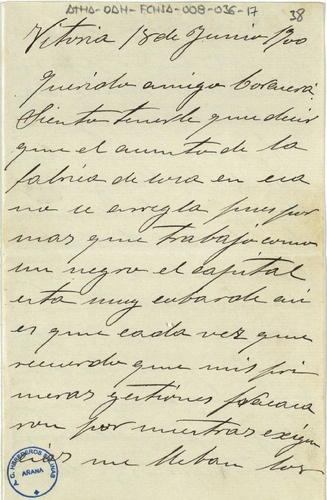 ATHA-DAH-FCHSA-008-036-17
38
Vitoria 18 de Junio 1900
Querido amigo
Siento tenerle que decir
que el asunto de la
fabrica de losa en esa
no se arregla pues por
mas que trabajo como
un negro el capital
esta muy cobarde asi
es que cada vez que
recuerdo que mis pri
meras gestiones fracasa
ron por
me llevan los
C. HEREDEROS SALINAS
AÑANA